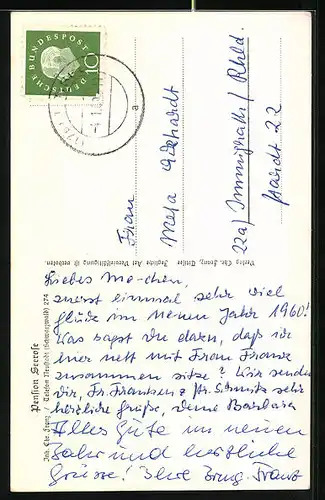 DEUTSCHE BUNDESPOST
10
a
Frau
Meta
22a) / Rhld.
Hardt 22
Pension Seerose
Inh. Chr. Franz / Telefon Neustadt (Schwarzwald) 274
Verlag Chr. Franz, Titisee Jegliche Art Vervielfältigung ist verboten.
Liebes Me-chen,
zuerst einmal sehr viel
Glück im neuen Jahr 1960!
Was sagst Du dazu, daß ich
hier nett mit Frau Franz
zusammen sitze? Wir senden
Dir, Fr. Frantzen & Fr. Schmitz sehr
herzliche Grüße, Deine Barbara
Alles Gute im neuen
Jahr und herzliche
Grüsse! Ihre Franz